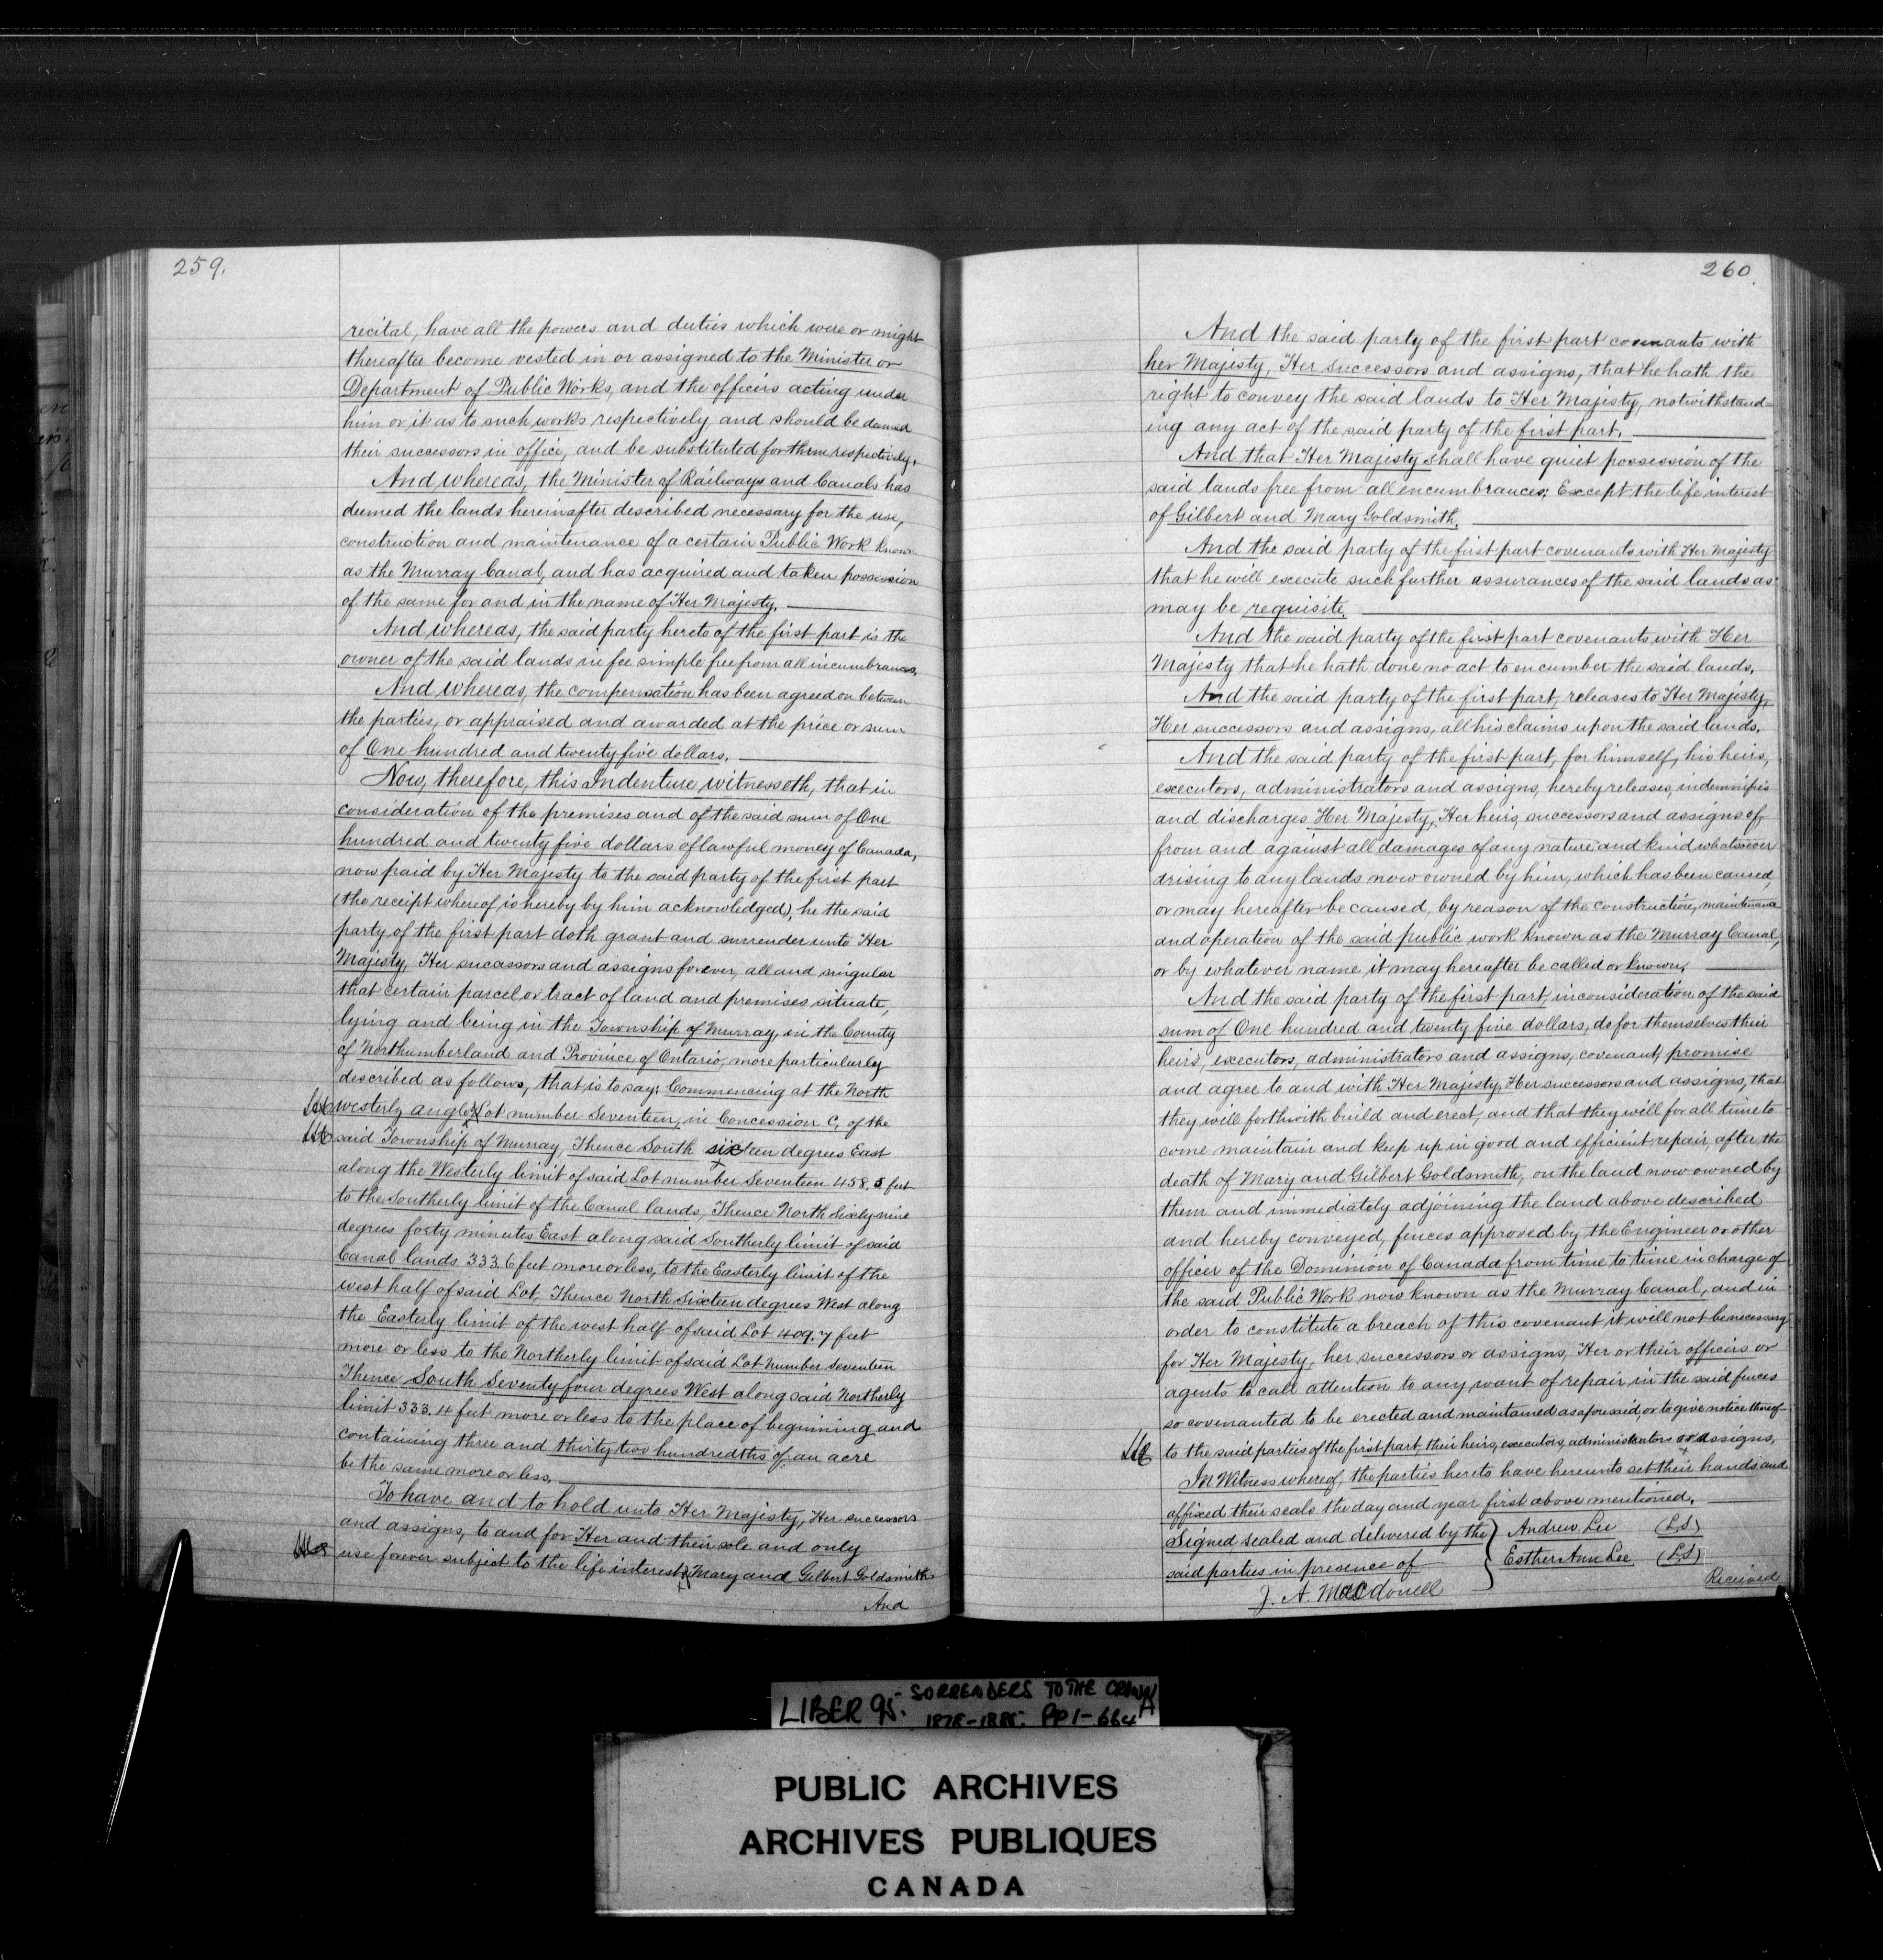 259.
recital, have all the powers and duties which were or might
thereafter become vested in or assigned to the Minister or
Department of Public Works, and the officers acting under
him or it as to such works respectively and should be deemed
their successors in office, and be substituted for them respectively.
And whereas, the Minister of Railways and Canals has
deemed the lands hereinafter described necessary for the use,
construction and maintenance of a certain Public Work known
as the Murray Canal, and has acquired and taken possession
of the same for and in the name of Her Majesty.
And whereas, the said party hereto of the first part is the
owner of the said lands in fee simple free from all incumbrances.
And whereas, the compensation has been agreed on between
the parties, or appraised and awarded at the price or sum
of One hundred and twenty five dollars.
Now, therefore, this Indenture witnesseth, that in
consideration of the premises and of the said sum of One
hundred and twenty five dollars of lawful money of Canada,
now paid by Her Majesty to the said party of the first part
(the receipt whereof is hereby by him acknowledged), he the said
party of the first part doth grant and surrender unto Her
Majesty, Her sucassors and assigns forever, all and singular
that certain parcel or tract of land and premises situate,
lying and being in the Township of Murray, in the County
of Northumberland and Province of Ontario, more particularly
described as follows, that is to say; Commencing at the North
westerly angle of Lot number Seventeen, in Concession C, of the
said Township of Murray, Thence South sixteen degrees East
along the Westerly limit of said Lot number Seventeen 458.5 feet
to the Southerly limit of the Canal lands, Thence North Sixty nine
degrees forty minutes East along said Southerly limit of said
Canal lands 333.6 feet more or less, to the Easterly limit of the
west half of said Lot, Thence North Sixteen degrees West along
the Easterly limit of the west half of said Lot 409.7 feet
more or less to the Northerly limit of said Lot number Seventeen
Thence South Seventy four degrees West along said Northerly
limit 333.4 feet more or less to the place of beginning and
containing three and thirty two hundredths of an acre
be the same more or less.
To have and to hold unto Her Majesty, Her successors
and assigns, to and for Her and their sole and only
use forever subject to the life interest of Mary and Gilbert Goldsmith
And
260.
And the said party of the first part covenants with
her Majesty, Her successors and assigns, that he hath the
right to convey the said lands to Her Majesty, notwithstand=
ing any act of the said party of the first part.
And that Her Majesty shall have quiet possession of the
said lands free from all encumbrances: Except the life interest
of Gilbert and Mary Goldsmith.
And the said party of the first part covenants with Her Majesty
that he will execute such further assurances of the said lands as
may be requisite.
And the said party of the first part covenants with Her
Majesty that he hath done no act to encumber the said lands.
And the said party of the first part, releases to Her Majesty,
Her successors and assigns, all his claims upon the said lands.
And the said party of the first part, for himself, his heirs,
executors, administrators and assigns, hereby releases, indemnifies
and discharges Her Majesty, Her heirs, successors and assigns of
from and against all damages of any nature and kind whatsoever
arising to any lands now owned by him, which has been caused,
or may hereafter be caused, by reason of the construction, maintenance
and operation of the said public work known as the Murray Canal,
or by whatever name it may hereafter be called or known.
And the said party of the first part, in consideration of the said
sum of One hundred and twenty five dollars, do for themselves their
heirs, executors, administrators and assigns, covenant, promise
and agree to and with Her Majesty, Her successors and assigns, that
they will forthwith build and erect, and that they will for all time to
come maintain and keep up in good and efficient repair, after the
death of Mary and Gilbert Goldsmith, on the land now owned by
them and immediately adjoining the land above described
and hereby conveyed, fences approved by the Engineer or other
officer of the Dominion of Canada from time to time in charge of
the said Public Work now known as the Murray Canal, and in
order to constitute a breach of this covenant it will not be necessary
for Her Majesty, her successors or assigns, Her or their officers or
agents to call attention to any want of repair in the said fences
so covenanted to be erected and maintained as aforesaid, or to give notice thereof
to the said parties of the first part their heirs, executors, administrators or assigns.
In Witness whereof, the parties hereto have hereunto set their hands and
affixed their seals the day and year first above mentioned.
Signed sealed and delivered by the } Andrew Lee (L.S)
said parties in presence of Esther Ann Lee (L.S)
J. A. Macdonell
Received
LIBER 95. SORRENDERS TO THE CROWN
1878-1885. PP 1-664
PUBLIC ARCHIVES
ARCHIVES PUBLIQUES
CANADA